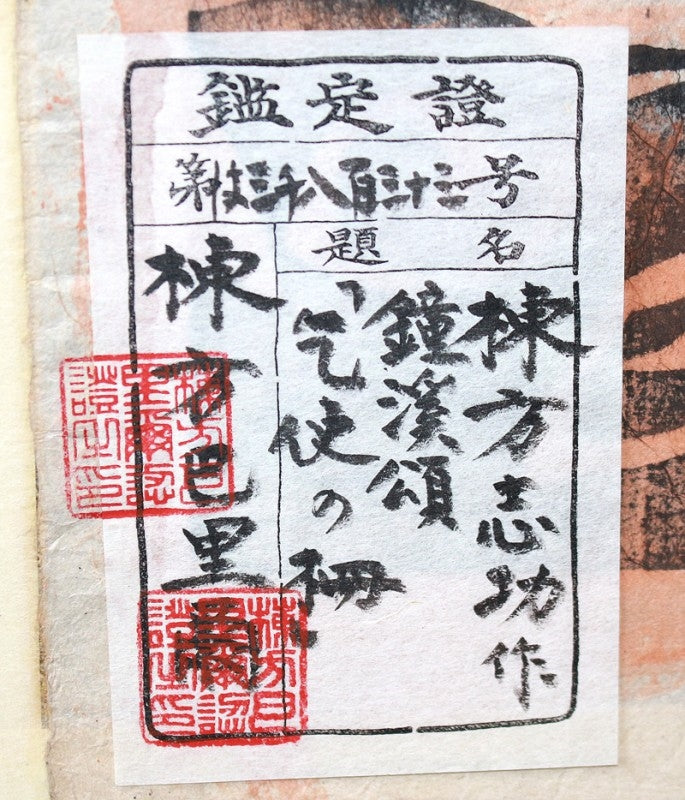 鑑定證
第三千八百三十三号
題名
棟方志功作
鐘溪頌
「乞使の柵」
棟方巴里爾